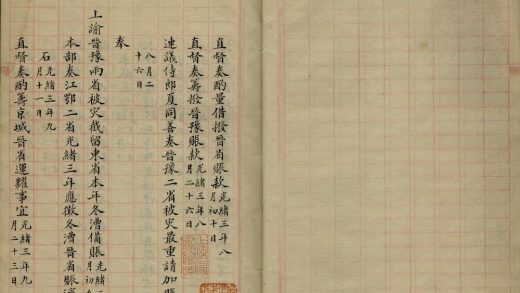 直督奏酌量借撥晉省賑款光緒三年八
月初十日
直督奏籌撥晉豫賑款光緒三年八
月二十六日
速議侍郎夏同善奏晉豫二省被灾最重請加賑
八月二
十六日
奉
上諭晉豫兩省被灾截留東省本年冬漕備賑光
月初
本部奏江鄂二省光緒三年應徵冬漕晉省賑
石光緒三年九
月十一日
直督奏酌籌京城晉省運糶事宜光緒三年九
月二十三日